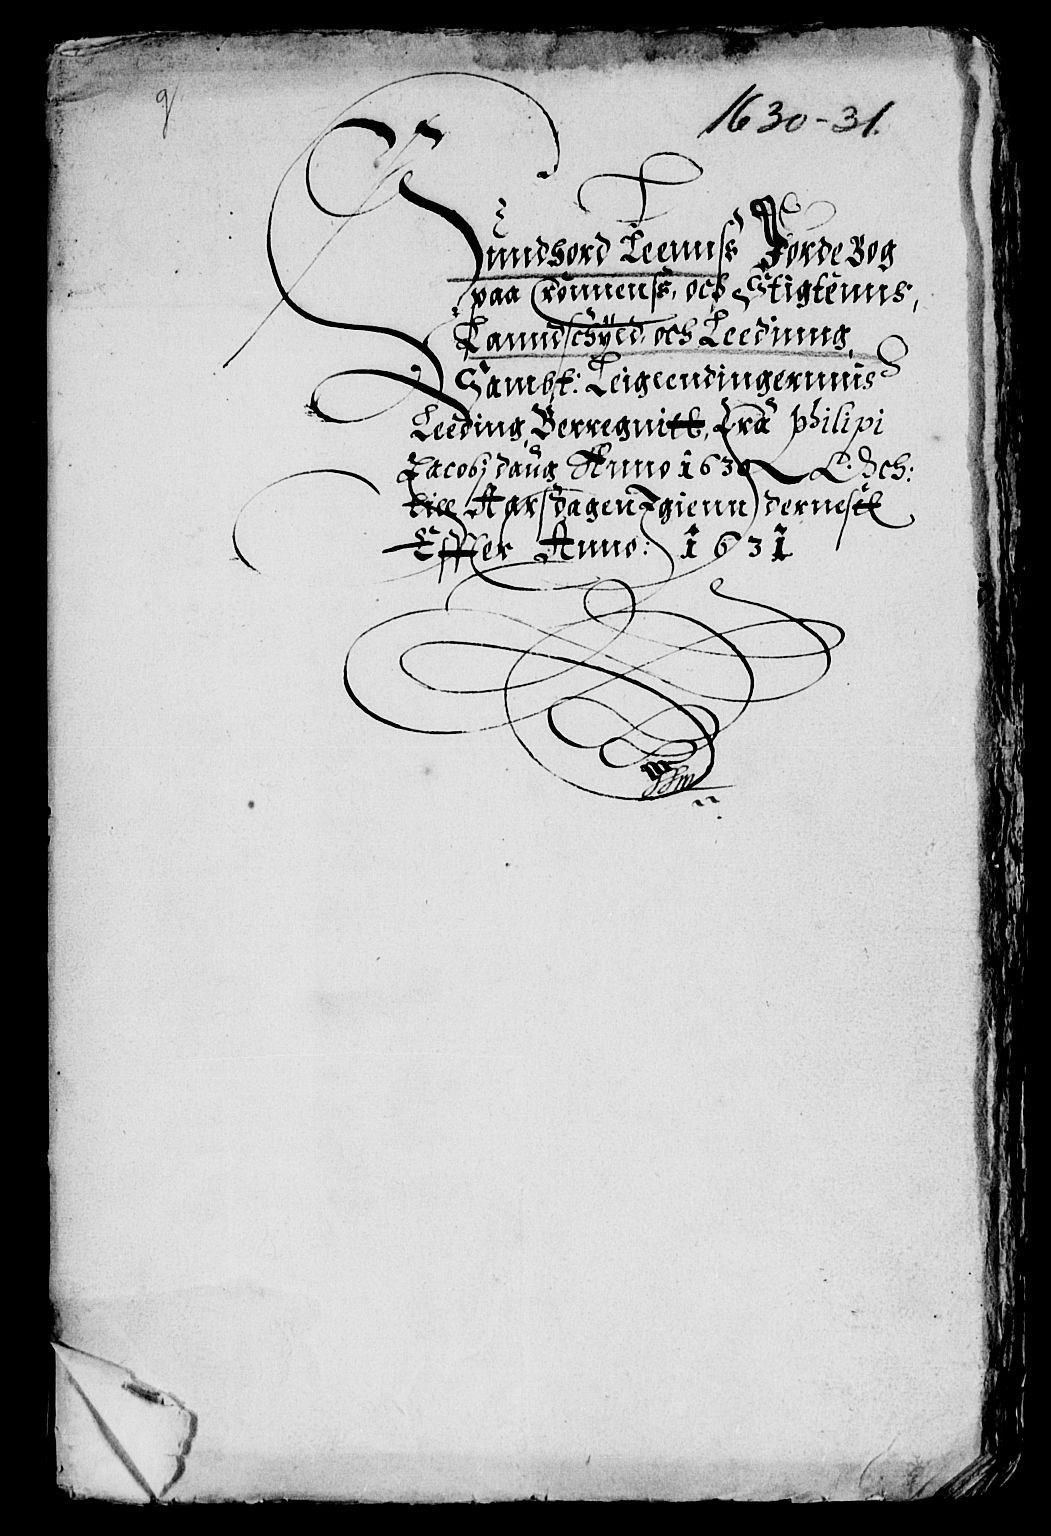 9
1630-31.
Sundhord Leenns Jorde Bog
paa Cronnenss, och Stigtenns,
Lanndschyld och Leedinng,
Sambt: Leigeendingernnis
Leeding, Berregnitt, Fra Philipi
Jacobj daug Anno 1630 Och:
till Aarsdagen Igienn dernest
Effter Anno: 1631